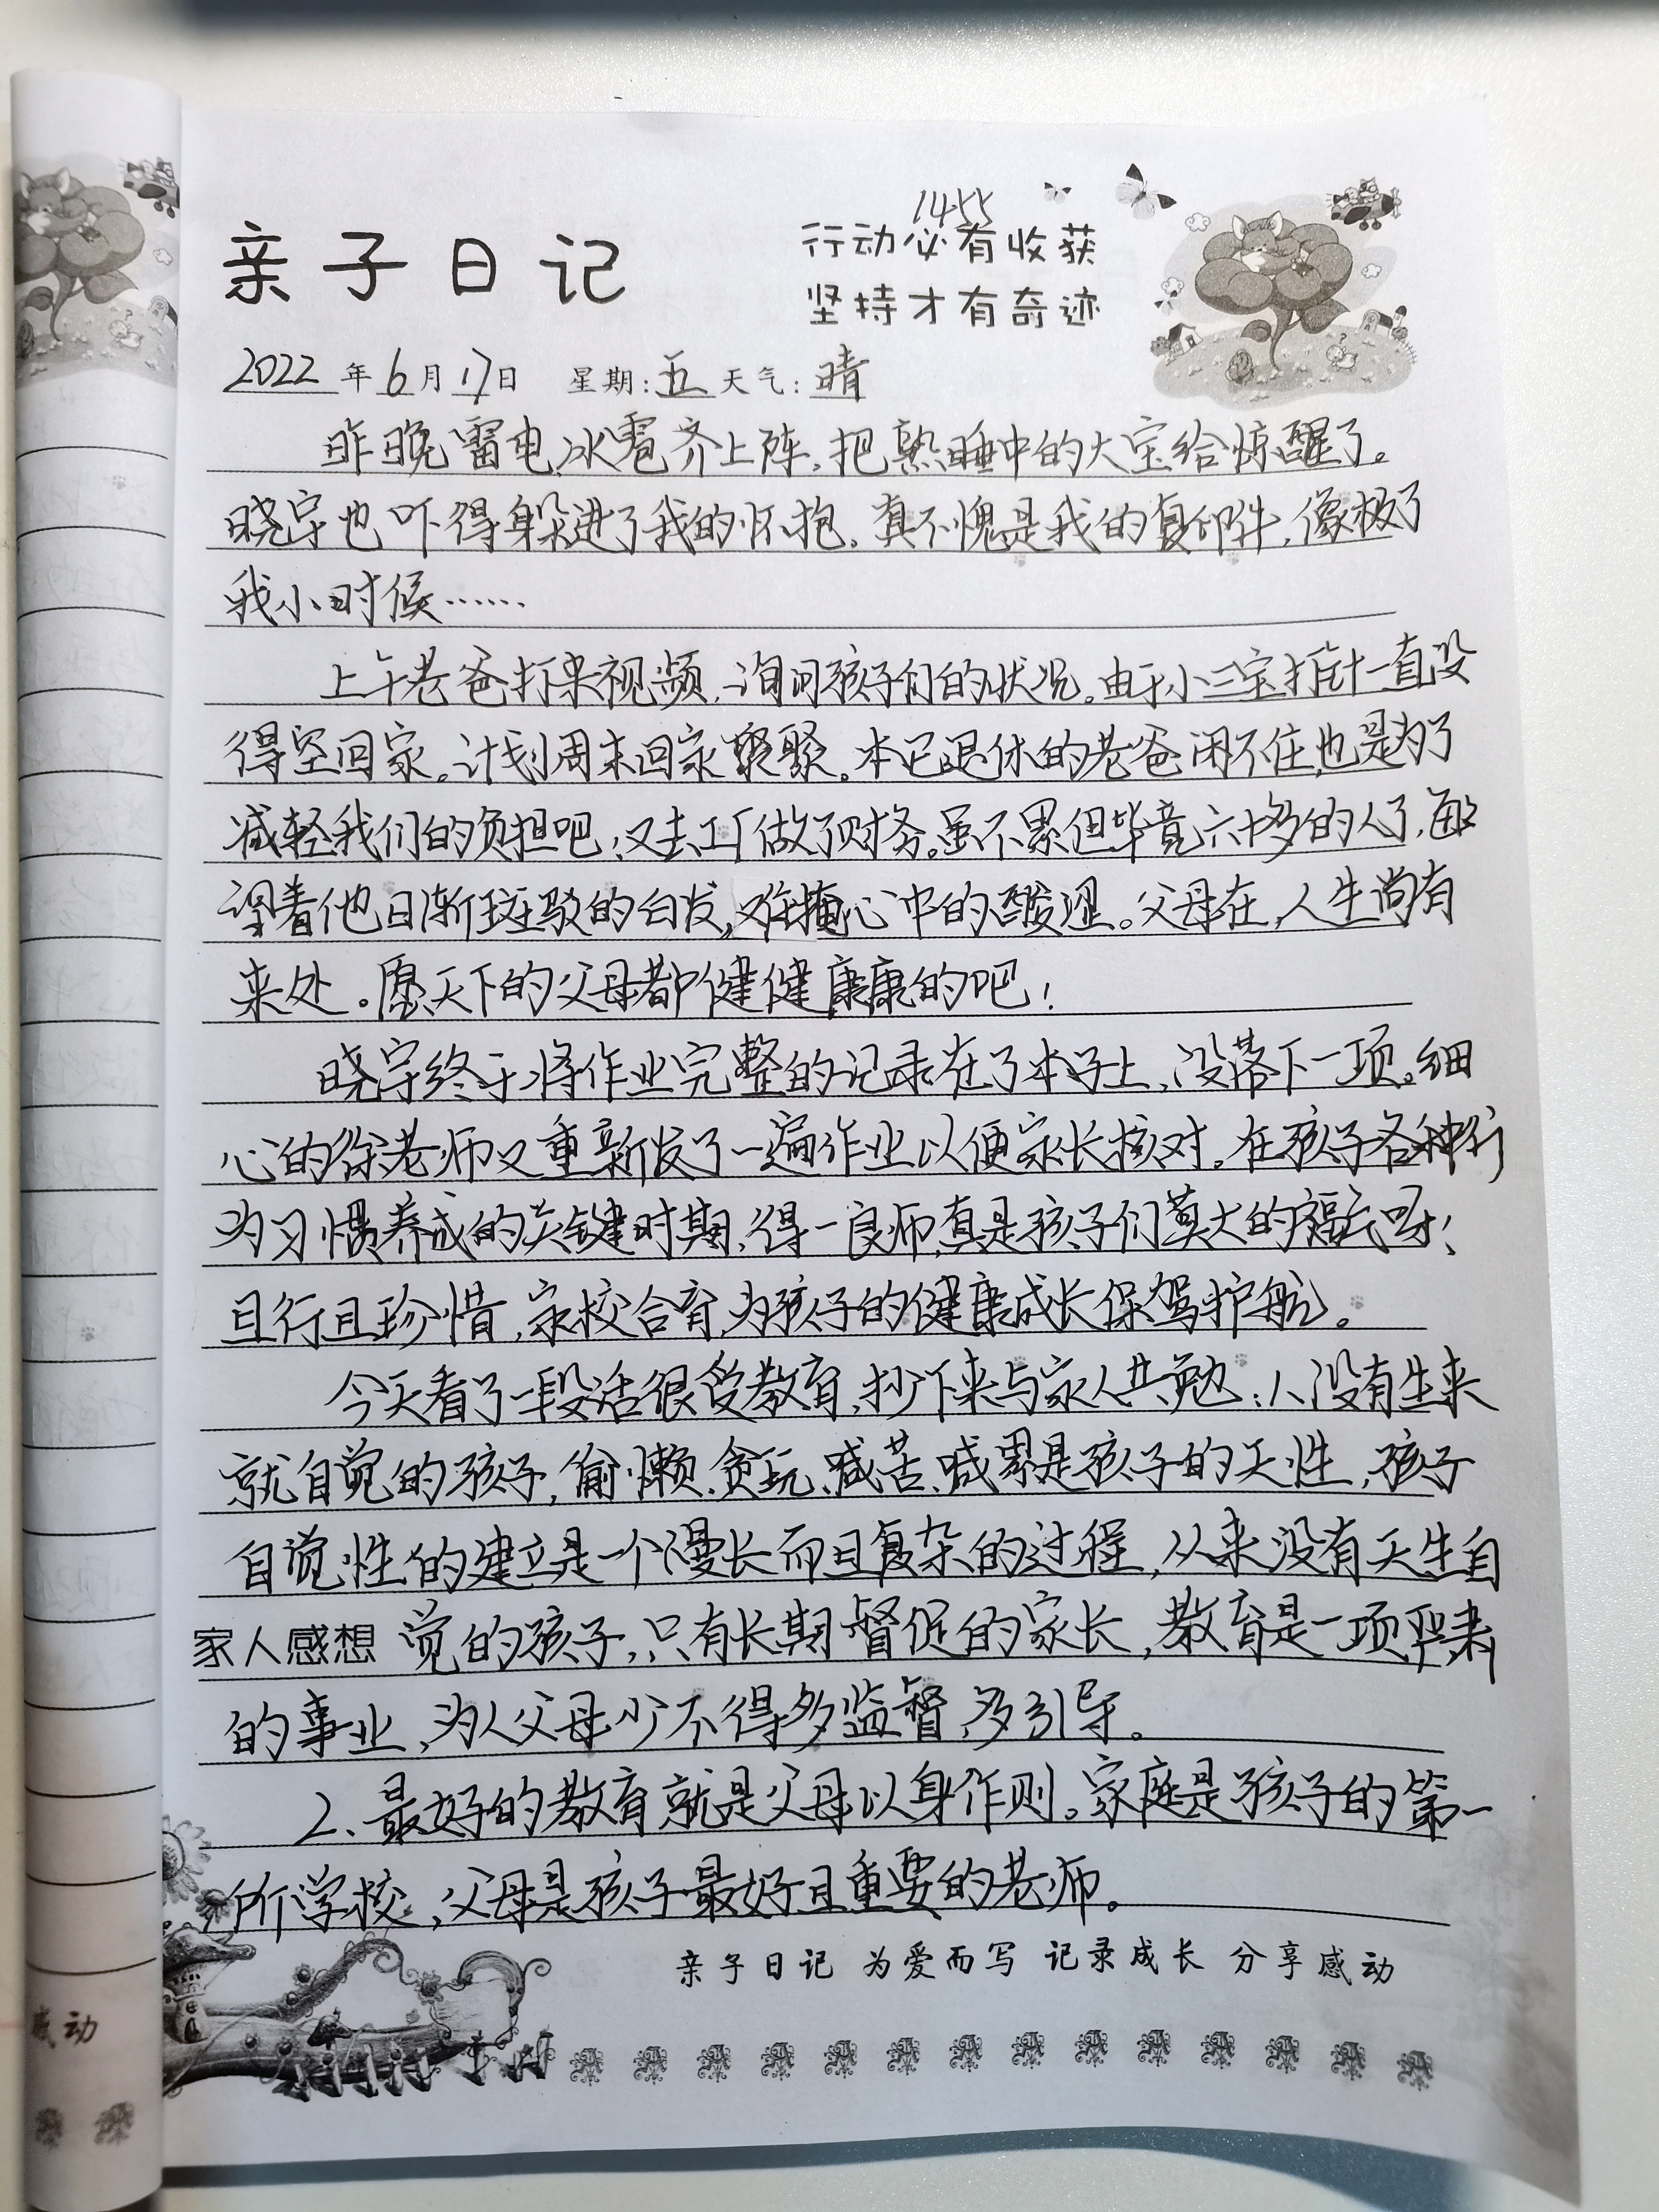 1455
亲子日记
行动必有收获
坚持才有奇迹
2022年6月17日 星期:五 天气:晴
昨晚雷电、冰雹齐上阵,把熟睡中的大宝给惊醒了。
晓宇也吓得躲进了我的怀抱。真不愧是我的复印件,像极了
我小时候……
上午老爸打来视频,询问孩子们的状况。由于小三宝打针一直没
得空回家。计划周末回家聚聚。本已退休的老爸闲不住,也是为了
减轻我们的负担吧,又去工厂做了财务。虽不累但毕竟六十多的人了,每
望着他日渐斑驳的白发,难掩心中的酸涩。父母在,人生尚有
来处。愿天下的父母都健健康康的吧!
晓宇终于将作业完整的记录在了本子上,没落下一项。细
心的徐老师又重新发了一遍作业以便家长核对。在孩子各种行
为习惯养成的关键时期,得一良师,真是孩子们莫大的福气呀!
且行且珍惜,家校合育,为孩子的健康成长保驾护航。
今天看了一段话很受教育,抄下来与家人共勉:1、没有生来
就自觉的孩子,偷懒、贪玩、喊苦、喊累是孩子的天性,孩子
自觉性的建立是一个漫长而且复杂的过程,从来没有天生自
家人感想 觉的孩子,只有长期督促的家长,教育是一项严肃
的事业,为人父母少不得多监督,多引导。
2、最好的教育就是父母以身作则。家庭是孩子的第一
所学校,父母是孩子最好且重要的老师。
亲子日记 为爱而写 记录成长 分享感动
感动